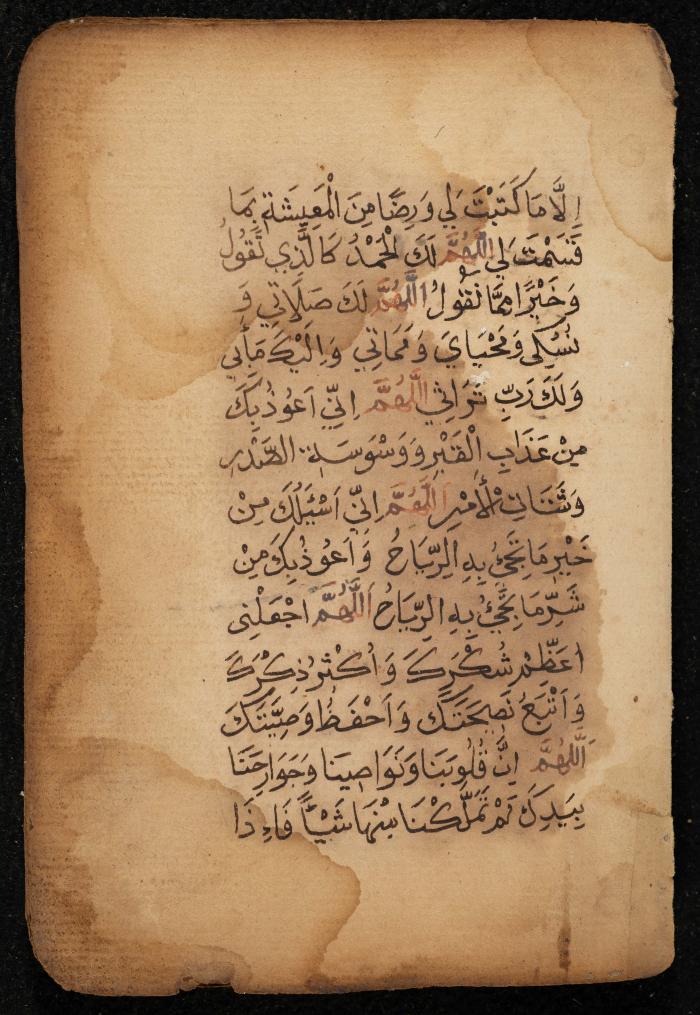 اِلَّا مَا كَتَبْتَ لِي وَرِضًا مِنَ الْمَعِيشَةِ بِمَا
قَسَمْتَ لِي اَللّٰهُمَّ لَكَ الْحَمْدُ كَالَّذِي تَقُولُ
وَخَيْرًا مِمَّا نَقُولُ اَللّٰهُمَّ لَكَ صَلَاتِي وَ
نُسُكِي وَمَحْيَايَ وَمَمَاتِي وَاِلَيْكَ مَأٰبِي
وَلَكَ رَبِّ تُرَاثِي اَللّٰهُمَّ اِنِّي اَعُوذُ بِكَ
مِنْ عَذَابِ الْقَبْرِ وَوَسْوَسَةِ الصَّدْرِ
وَشَتَاتِ الْأَمْرِ اَللّٰهُمَّ اِنِّي اَسْئَلُكَ مِنْ
خَيْرِ مَا تَجِئُ بِهِ الرِّيَاحُ وَاَعُوذُ بِكَ مِنْ
شَرِّ مَا تَجِئُ بِهِ الرِّيَاحُ اَللّٰهُمَّ اجْعَلْنِي
اُعَظِّمْ شُكْرَكَ وَاُكْثِرُ ذِكْرَكَ
وَاَتْبَعُ نَصِيحَتَكَ وَاَحْفَظُ وَصِيَّتَكَ
اَللّٰهُمَّ اِنَّ قُلُوبَنَا وَنَوَاصِينَا وَجَوَارِحَنَا
بِيَدِكَ لَمْ تُمَلِّكْنَا مِنْهَا شَيْئًا فَاِذَا